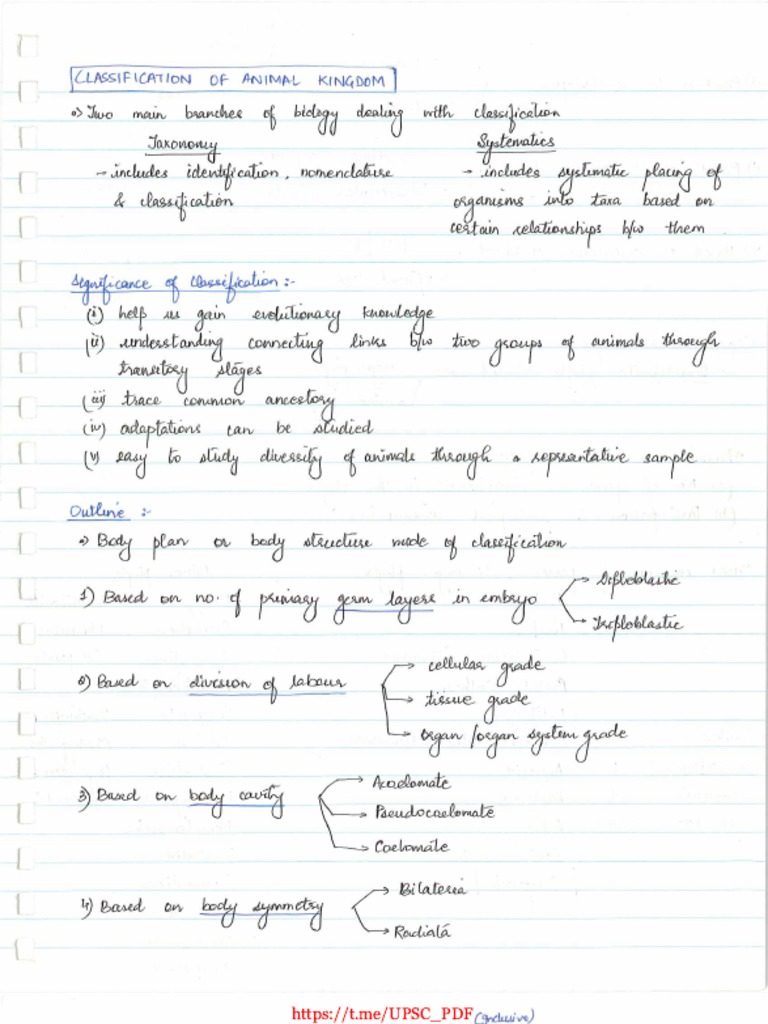 CLASSIFICATION OF ANIMAL KINGDOM
Two main branches of biology dealing with classification
Taxonomy Systematics
- includes identification, nomenclature - includes systematic placing of
& classification organisms into taxa based on
certain relationships b/w them
Significance of Classification :-
(i) help us gain evolutionary knowledge
(ii) understanding connecting links b/w two groups of animals through
transitory stages
(iii) trace common ancestory
(iv) adaptations can be studied
(v) easy to study diversity of animals through a representative sample
Outline :-
Body plan or body structure mode of classification
1) Based on no. of primary germ layers in embryo → Diploblastic
→ Triploblastic
2) Based on division of labour → cellular grade
→ tissue grade
→ organ/organ system grade
3) Based on body cavity → Acoelomate
→ Pseudocoelomate
→ Coelomate
4) Based on body symmetry → Bilateria
→ Radiata
https://t.me/UPSC_PDF (Inclusive)